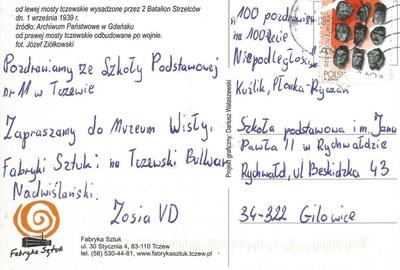 od lewej mosty tczewskie wysadzone przez 2 Batalion Strzelców
dn. 1 września 1939 r.
źródło: Archiwum Państwowe w Gdańsku
od prawej mosty tczewskie odbudowane po wojnie.
fot. Józef Ziółkowski
Pozdrawiamy ze Szkoły Podstawowej
nr 11 w Tczewie
Zapraszamy do Muzeum Wisły,
Fabryki Sztuk i na Tczewski Bullwar
Nadwiślański.
Zosia VD
Fabryka Sztuk
Fabryka Sztuk
ul. 30 Stycznia 4, 83-110 Tczew
tel. (58) 530-44-81, www.fabrykasztuk.tczew.pl
Projekt graficzny: Dariusz Wałaszewski
"100 pozdrowień
na 100lecie
Niepodległości"
Koźlik, Płonka-Ryczan
POLSKA
Szkoła podstawowa im. Jana
Pawła II w Rychwałdzie
Rychwałd, ul Beskidzka 43
34-322 Gilowice